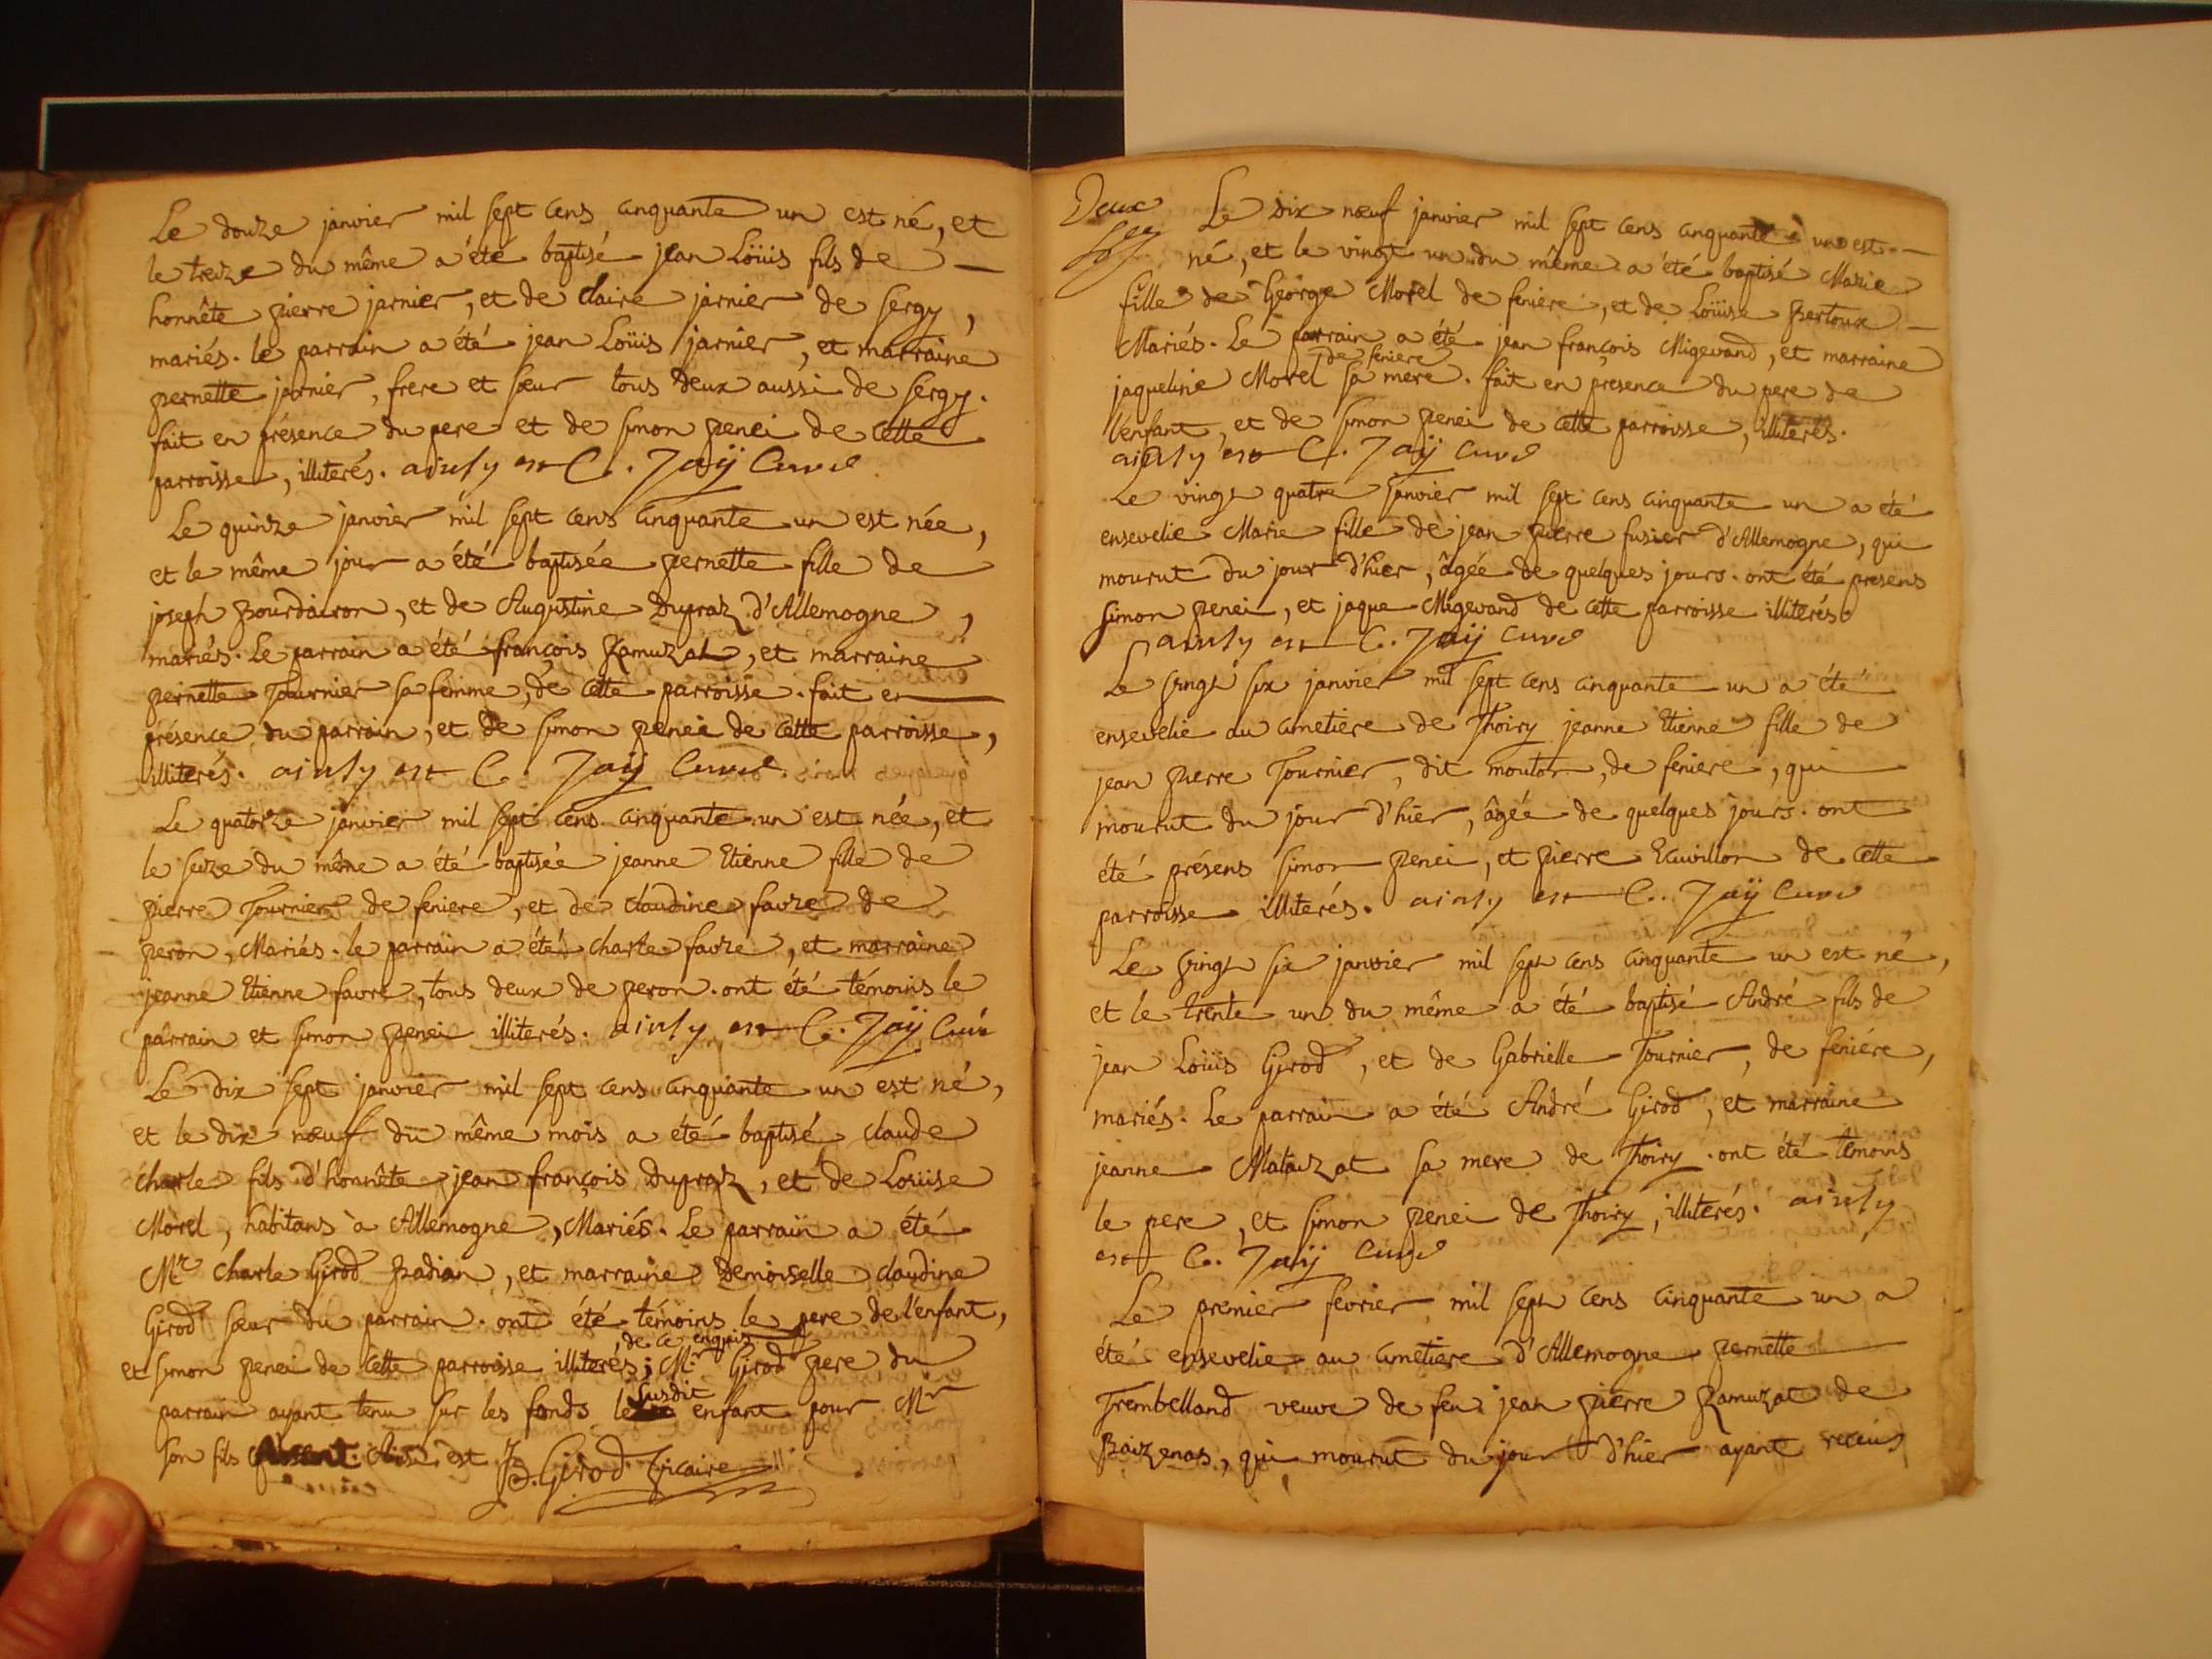 Le douze janvier mil sept cens cinquante un est né, et
le treize du même a été baptisé jean Loüis fils de
honnête pierre jarnier, et de claire jarnier de sergy,
mariés. le parrain a été jean Loüis jarnier, et marraine
pernette jarnier, frere et sœur tous deux aussi de sergy.
fait en présence du pere et de simon penei de cette
parroisse, illiterés. ainsy est C. Jaÿ Curé
Le quinze janvier mil sept cens cinquante un est née,
et le même jour a été baptisée pernette fille de
joseph Bourdairon, et de Augustine Dupraz d'Allemogne,
mariés. Le parrain a été françois Ramuzat, et marraine
pernette Tournier sa femme, de cette parroisse. fait en
présence du parrain, et de simon penei de cette parroisse,
illiterés. ainsy est C. Jaÿ Curé
Le quatorze janvier mil sept cens cinquante un est née, et
le seize du même a été baptisée jeanne Etienne fille de
pierre Tournier de feniere, et de claudine favre de
peron, Mariés. le parrain a été charle favre, et marraine
jeanne Etienne favre, tous deux de peron. ont été témoins le
parrain et simon penei illiterés. ainsy est C. Jaÿ Curé
Le dix sept janvier mil sept cens cinquante un est né,
et le dix nœuf du même mois a été baptisé claude
charle fils d'honnête jean françois Dupraz, et de Loüise
Morel, habitans à Allemogne, Mariés. Le parrain a été
Mr. charle Girod Badian, et marraine Demoiselle claudine
Girod sœur du parrain. ont été témoins le pere de l'enfant,
de ce enquis
et simon penei de cette parroisse illiterés; Mr. Girod pere du
susdit
parrain ayant tenu sur les fonds le enfant pour Mr
son fils absent. Ainsi est JB. Girod Vicaire
Deux Le dix nœuf janvier mil sept cens cinquante un est
né, et le vingt un du même a été baptisé Marie
fille de George Morel de feniere, et de Loüise Pertoux
Mariés. Le parrain a été jean françois Migevand, et marraine
de feniere
jaqueline Morel sa mere. fait en presence du pere de
l'enfant, et de simon penei de cette parroisse, illiterés.
ainsy est C. Jaÿ Curé
Le vingt quatre janvier mil sept cens cinquante un a été
ensevelie Marie fille de jean pierre fusier d'Allemogne, qui
mourut du jour d'hier, âgée de quelques jours. ont été presens
simon penei, et jaque Migevand de cette parroisse illiterés.
ainsy est C. Jaÿ Curé
Le vingt six janvier mil sept cens cinquante un a été
ensevelie au cimetiere de Thoiry jeanne Etienne fille de
jean pierre Tournier, dit mouton, de feniere, qui
mourut du jour d'hier, âgée de quelques jours. ont
été présens simon penei, et pierre de cette
parroisse illiterés. ainsy est C. Jaÿ Curé
Le vingt six janvier mil sept cens cinquante un est né,
et le trente un du même a été baptisé André fils de
jean Loüis Girod, et de Gabrielle Tournier, de feniére,
mariés. Le parrain a été André Girod, et marraine
jeanne Matauzat sa mere de Thoiry. ont été témoins
le pere, et simon penei de Thoiry, illiterés. ainsy
est C. Jaÿ Curé
Le premier fevrier mil sept cens cinquante un a
été ensevelie au cimetiere d'Allemogne pernette
Trembelland veuve de feu jean pierre Ramuzat de
Baizenas, qui mourut du jour d'hier ayant receus